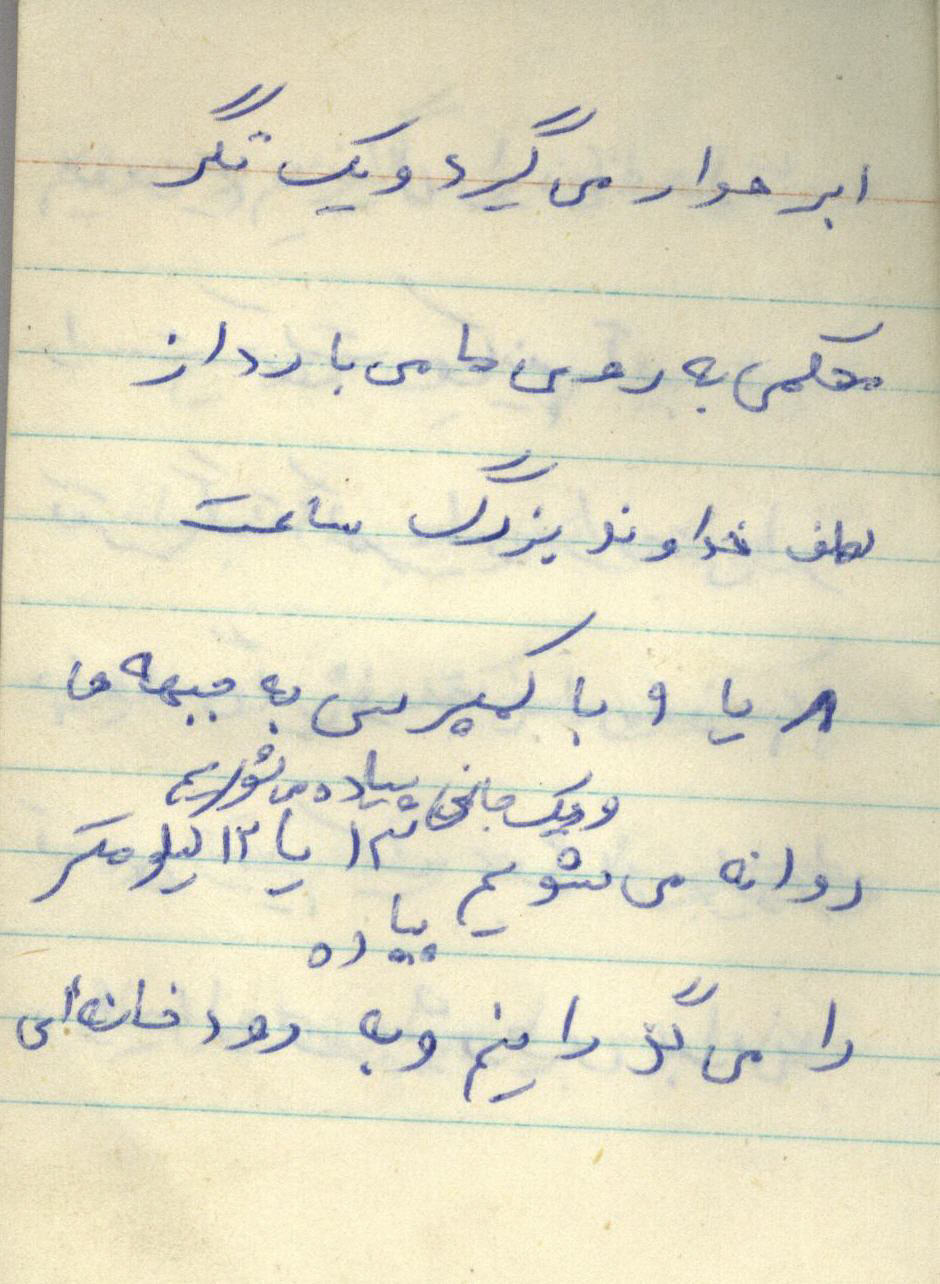 ابر هوا را می گیرد و یک تگر
محکمی به روی ما می بارد از
لطف خداوند بزرگ ساعت
۸ یا ۹ با کمپرسی به جبهه ها
و یک جائی پیاده می شویم
روانه می شویم ۱۳ یا ۱۲ کیلومتر
پیاده
را می گذرانیم و به رودخانه ای